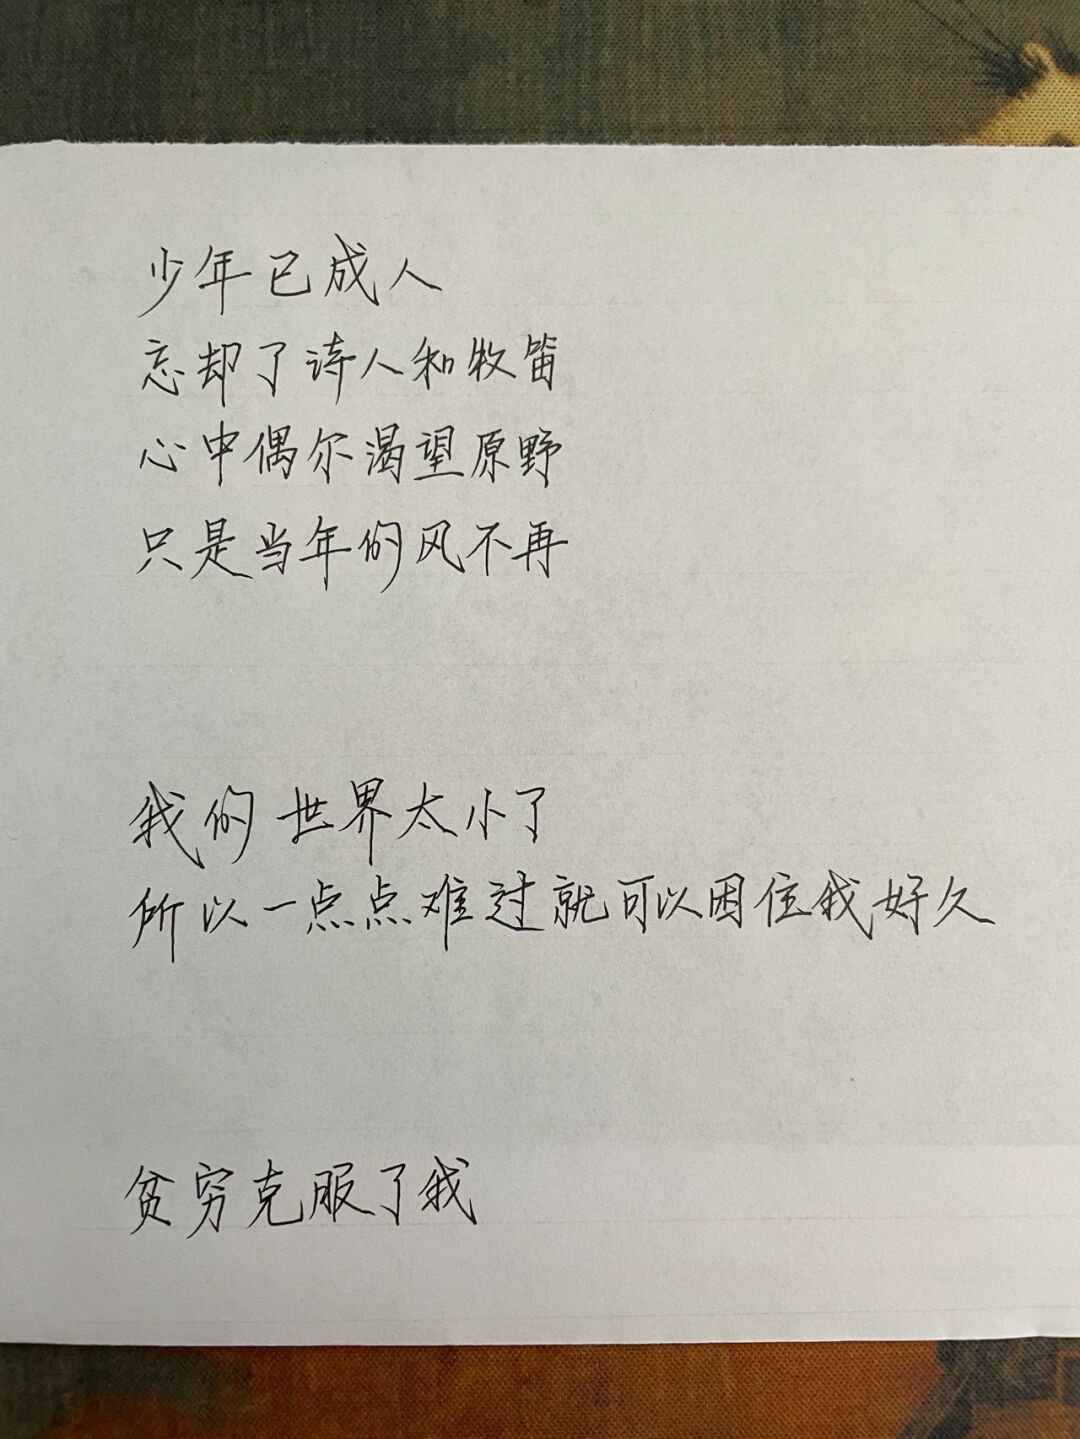 少年已成人
忘却了诗人和牧笛
心中偶尔渴望原野
只是当年的风不再
我的世界太小了
所以一点点难过就可以困住我好久
贫穷克服了我